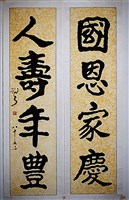 國恩家慶
人壽年豐